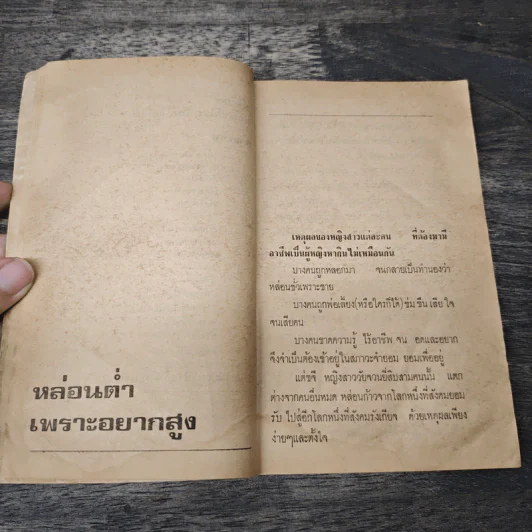 หล่อนต่ำ
เพราะอยากสูง
เหตุผลของหญิงสาวแต่ละคน ที่ต้องมามี
อาชีพเป็นผู้หญิงหากินไม่เหมือนกัน
บางคนถูกหลอกมา จนกลายเป็นทำนองว่า
หล่อนชั่วเพราะชาย
บางคนถูกพ่อเลี้ยง(หรือใครก็ได้)ข่มขืน เสียใจ
จนเสียคน
บางคนขาดความรู้ ไร้อาชีพ จน อดและอยาก
จึงจำเป็นต้องเข้าอยู่ในสภาวะจำยอม ยอมเพื่ออยู่
แต่ชจี หญิงสาววัยจวนยี่สิบสามคนนั้น แตก
ต่างจากคนอื่นหมด หล่อนก้าวจากโลกหนึ่งที่สังคมยอม
รับ ไปสู่อีกโลกหนึ่งที่สังคมรังเกียจ ด้วยเหตุผลเพียง
ง่ายๆและตั้งใจ